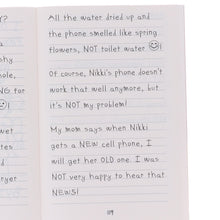 Y?
hy
ole,
NG for
!
wet
tes
d
ryer
All the water dried up and
the phone smelled like spring
flowers, NOT toilet water !
Of course, Nikki's phone doesn't
work that well anymore, but
it's NOT my problem!
My mom says when Nikki
gets a NEW cell phone, I
will get her OLD one. I was
NOT very happy to hear that
NEWS!
119